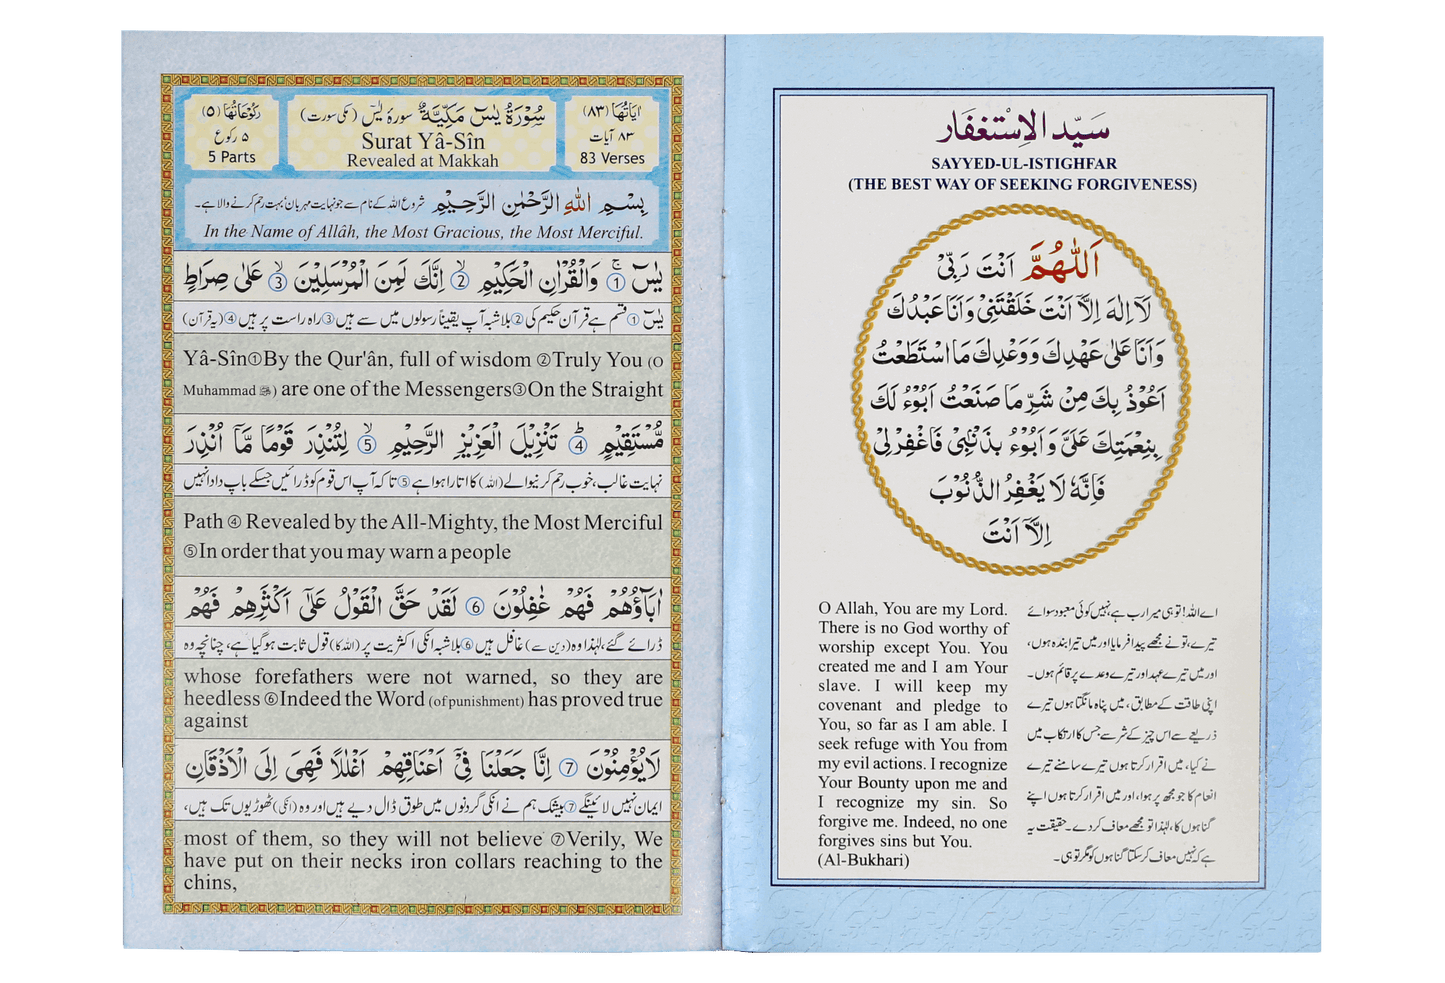 اٰيَاتُهَا (٨٣)
٨٣ آیات
83 Verses
سُوْرَةُ يٰسٓ مَكِّيَّةٌ سورۂ یٰسٓ (مکی سورت)
Surat Yâ-Sîn
Revealed at Makkah
رُكُوْعَاتُهَا (٥)
۵ رکوع
5 Parts
بِسْمِ اللهِ الرَّحْمٰنِ الرَّحِيْمِ شروع اللہ کے نام سے جو نہایت مہربان بہت رحم کرنے والا ہے۔
In the Name of Allâh, the Most Gracious, the Most Merciful.
يٰسٓ ۚ ① وَالْقُرْاٰنِ الْحَكِيْمِ ۙ ② اِنَّكَ لَمِنَ الْمُرْسَلِيْنَ ۙ ③ عَلٰى صِرَاطٍ
یٰسٓ ① قسم ہے قرآن حکیم کی ② بلاشبہ آپ یقیناً رسولوں میں سے ہیں ③ راہ راست پر ہیں ④ (یہ قرآن)
Yâ-Sîn①By the Qur'ân, full of wisdom ②Truly You (O
Muhammad ﷺ) are one of the Messengers③On the Straight
مُّسْتَقِيْمٍ ؕ ④ تَنْزِيْلَ الْعَزِيْزِ الرَّحِيْمِ ۙ ⑤ لِتُنْذِرَ قَوْمًا مَّآ اُنْذِرَ
نہایت غالب، خوب رحم کرنیوالے (اللہ) کا اتارا ہوا ہے ⑤ تاکہ آپ اس قوم کو ڈرائیں جسکے باپ دادا نہیں
Path ④ Revealed by the All-Mighty, the Most Merciful
⑤In order that you may warn a people
اٰبَآؤُهُمْ فَهُمْ غٰفِلُوْنَ ⑥ لَقَدْ حَقَّ الْقَوْلُ عَلٰٓى اَكْثَرِهِمْ فَهُمْ
ڈرائے گئے، لہٰذا وہ (دین سے) غافل ہیں ⑥ بلاشبہ انکی اکثریت پر (اللہ کا) قول ثابت ہو گیا ہے، چنانچہ وہ
whose forefathers were not warned, so they are
heedless ⑥Indeed the Word (of punishment) has proved true
against
لَا يُؤْمِنُوْنَ ⑦ اِنَّا جَعَلْنَا فِيْٓ اَعْنَاقِهِمْ اَغْلٰلًا فَهِىَ اِلَى الْاَذْقَانِ
ایمان نہیں لائینگے ⑦ بیشک ہم نے انکی گردنوں میں طوق ڈال دیے ہیں اور وہ (انکی) ٹھوڑیوں تک ہیں،
most of them, so they will not believe ⑦Verily, We
have put on their necks iron collars reaching to the
chins,
سَيِّدُ الْاِسْتِغْفَار
SAYYED-UL-ISTIGHFAR
(THE BEST WAY OF SEEKING FORGIVENESS)
اَللّٰهُمَّ اَنْتَ رَبِّيْ
لَآ اِلٰهَ اِلَّآ اَنْتَ خَلَقْتَنِيْ وَاَنَا عَبْدُكَ
وَاَنَا عَلٰى عَهْدِكَ وَوَعْدِكَ مَا اسْتَطَعْتُ
اَعُوْذُ بِكَ مِنْ شَرِّ مَا صَنَعْتُ اَبُوْءُ لَكَ
بِنِعْمَتِكَ عَلَيَّ وَاَبُوْءُ بِذَنْۢبِيْ فَاغْفِرْلِيْ
فَاِنَّهٗ لَا يَغْفِرُ الذُّنُوْبَ
اِلَّآ اَنْتَ
O Allah, You are my Lord.
There is no God worthy of
worship except You. You
created me and I am Your
slave. I will keep my
covenant and pledge to
You, so far as I am able. I
seek refuge with You from
my evil actions. I recognize
Your Bounty upon me and
I recognize my sin. So
forgive me. Indeed, no one
forgives sins but You.
(Al-Bukhari)
اے اللہ! تو ہی میرا رب ہے، نہیں کوئی معبود سوائے
تیرے، تو نے مجھے پیدا فرمایا اور میں تیرا بندہ ہوں،
اور میں تیرے عہد اور تیرے وعدے پر قائم ہوں۔
اپنی طاقت کے مطابق، میں پناہ مانگتا ہوں تیرے
ذریعے سے اس چیز کے شر سے جس کا ارتکاب میں
نے کیا، میں اقرار کرتا ہوں تیرے سامنے تیرے
انعام کا جو مجھ پر ہوا، اور میں اقرار کرتا ہوں اپنے
گناہوں کا، لہٰذا تو مجھے معاف کر دے۔ حقیقت یہ
ہے کہ نہیں معاف کر سکتا گناہوں کو مگر تو ہی۔